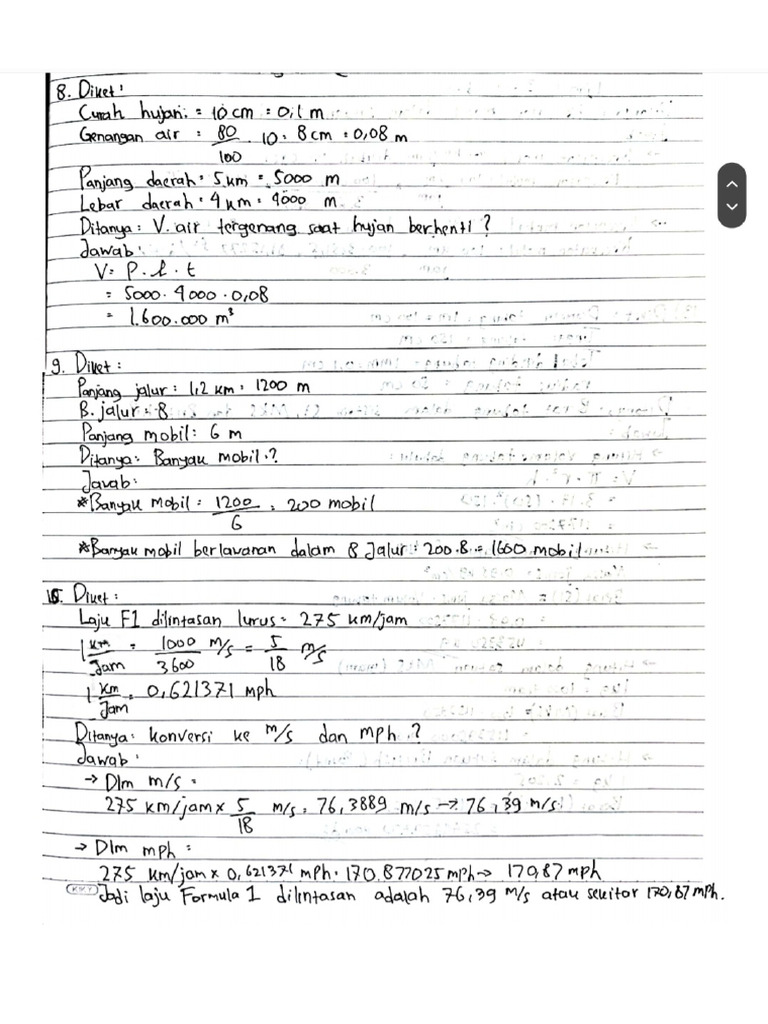 8. Diket:
Curah hujan: = 10 cm = 0,1 m
Genangan air : 80/100 . 10 = 8 cm = 0,08 m
Panjang daerah = 5 km = 5000 m
Lebar daerah = 4 km = 4000 m
Ditanya: V. air tergenang saat hujan berhenti?
Jawab:
V = P . l . t
= 5000 . 4000 . 0,08
= 1.600.000 m³
9. Diket:
Panjang jalur : 1,2 km = 1200 m
B. jalur = 8
Panjang mobil: 6 m
Ditanya: Banyak mobil.?
Jawab:
*Banyak mobil = 1200/6 = 200 mobil
*Banyak mobil berlawanan dalam 8 Jalur = 200.8 = 1600 mobil
Diket:
Laju F1 dilintasan lurus = 275 km/jam
1 km/Jam = 1000/3600 m/s = 5/18 m/s
1 km/Jam = 0,621371 mph
Ditanya: konversi ke m/s dan mph.?
Jawab:
→ Dlm m/s =
275 km/jam x 5/18 m/s = 76,3889 m/s → 76,39 m/s
→ Dlm mph =
275 km/jam x 0,621371 mph = 170.877025 mph → 170,87 mph
KKY Jadi laju Formula 1 dilintasan adalah 76,39 m/s atau sekitar 170,87 mph.